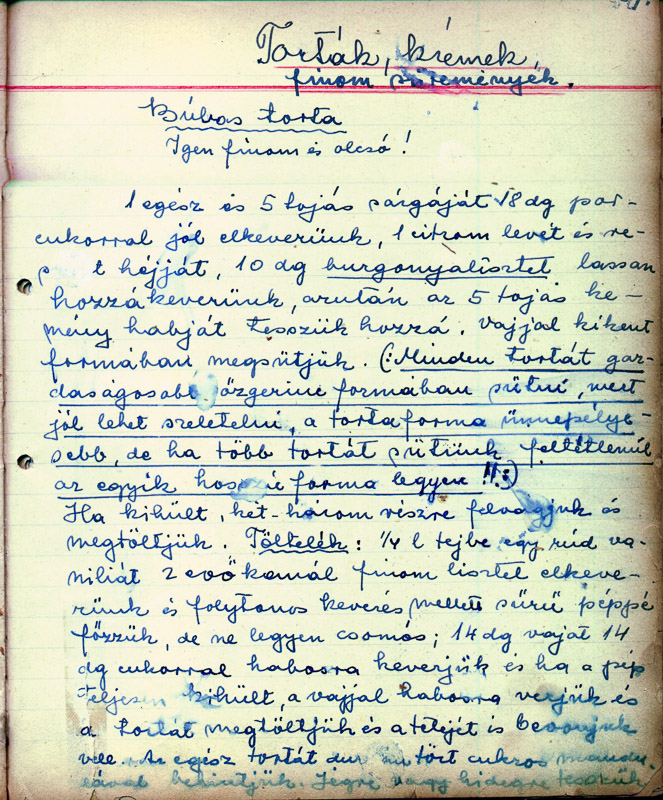 Torták, krémek,
finom sütemények.
Búbos torta
Igen finom és olcsó!
1 egész és 5 tojás sárgáját 18 dg por-
cukorral jól elkeverünk, 1 citrom levét és re-
t héjját, 10 dg burgonyalisztet lassan
hozzákeverünk, azután az 5 tojás ke-
mény habját tesszük hozzá. Vajjal kikent
formában megsütjük. (: Minden tortát gaz-
daságosabb őzgerinc formában sütni, mert
jól lehet szeletelni, a tortaforma ünnepélye-
sebb, de ha több tortát sütünk feltétlenül
az egyik hosszú forma legyen !!:)
Ha kihült, két-három részre felvágjuk és
megtöltjük. Töltelék: 1/4 l tejbe egy rúd va-
niliát 2 evőkanál finom lisztet elkeve-
rünk és folytonos keverés mellett sűrű péppé
főzzük, de ne legyen csomós; 14 dg vajat 14
dg cukorral habosra keverjük és ha a pép
teljesen kihült, a vajjal habosra verjük és
a tortát megtöltjük és a tetejét is bevonjuk
vele. Az egész tortát tört cukros mandu-
lával behintjük. Jégre vagy hidegre tesszük